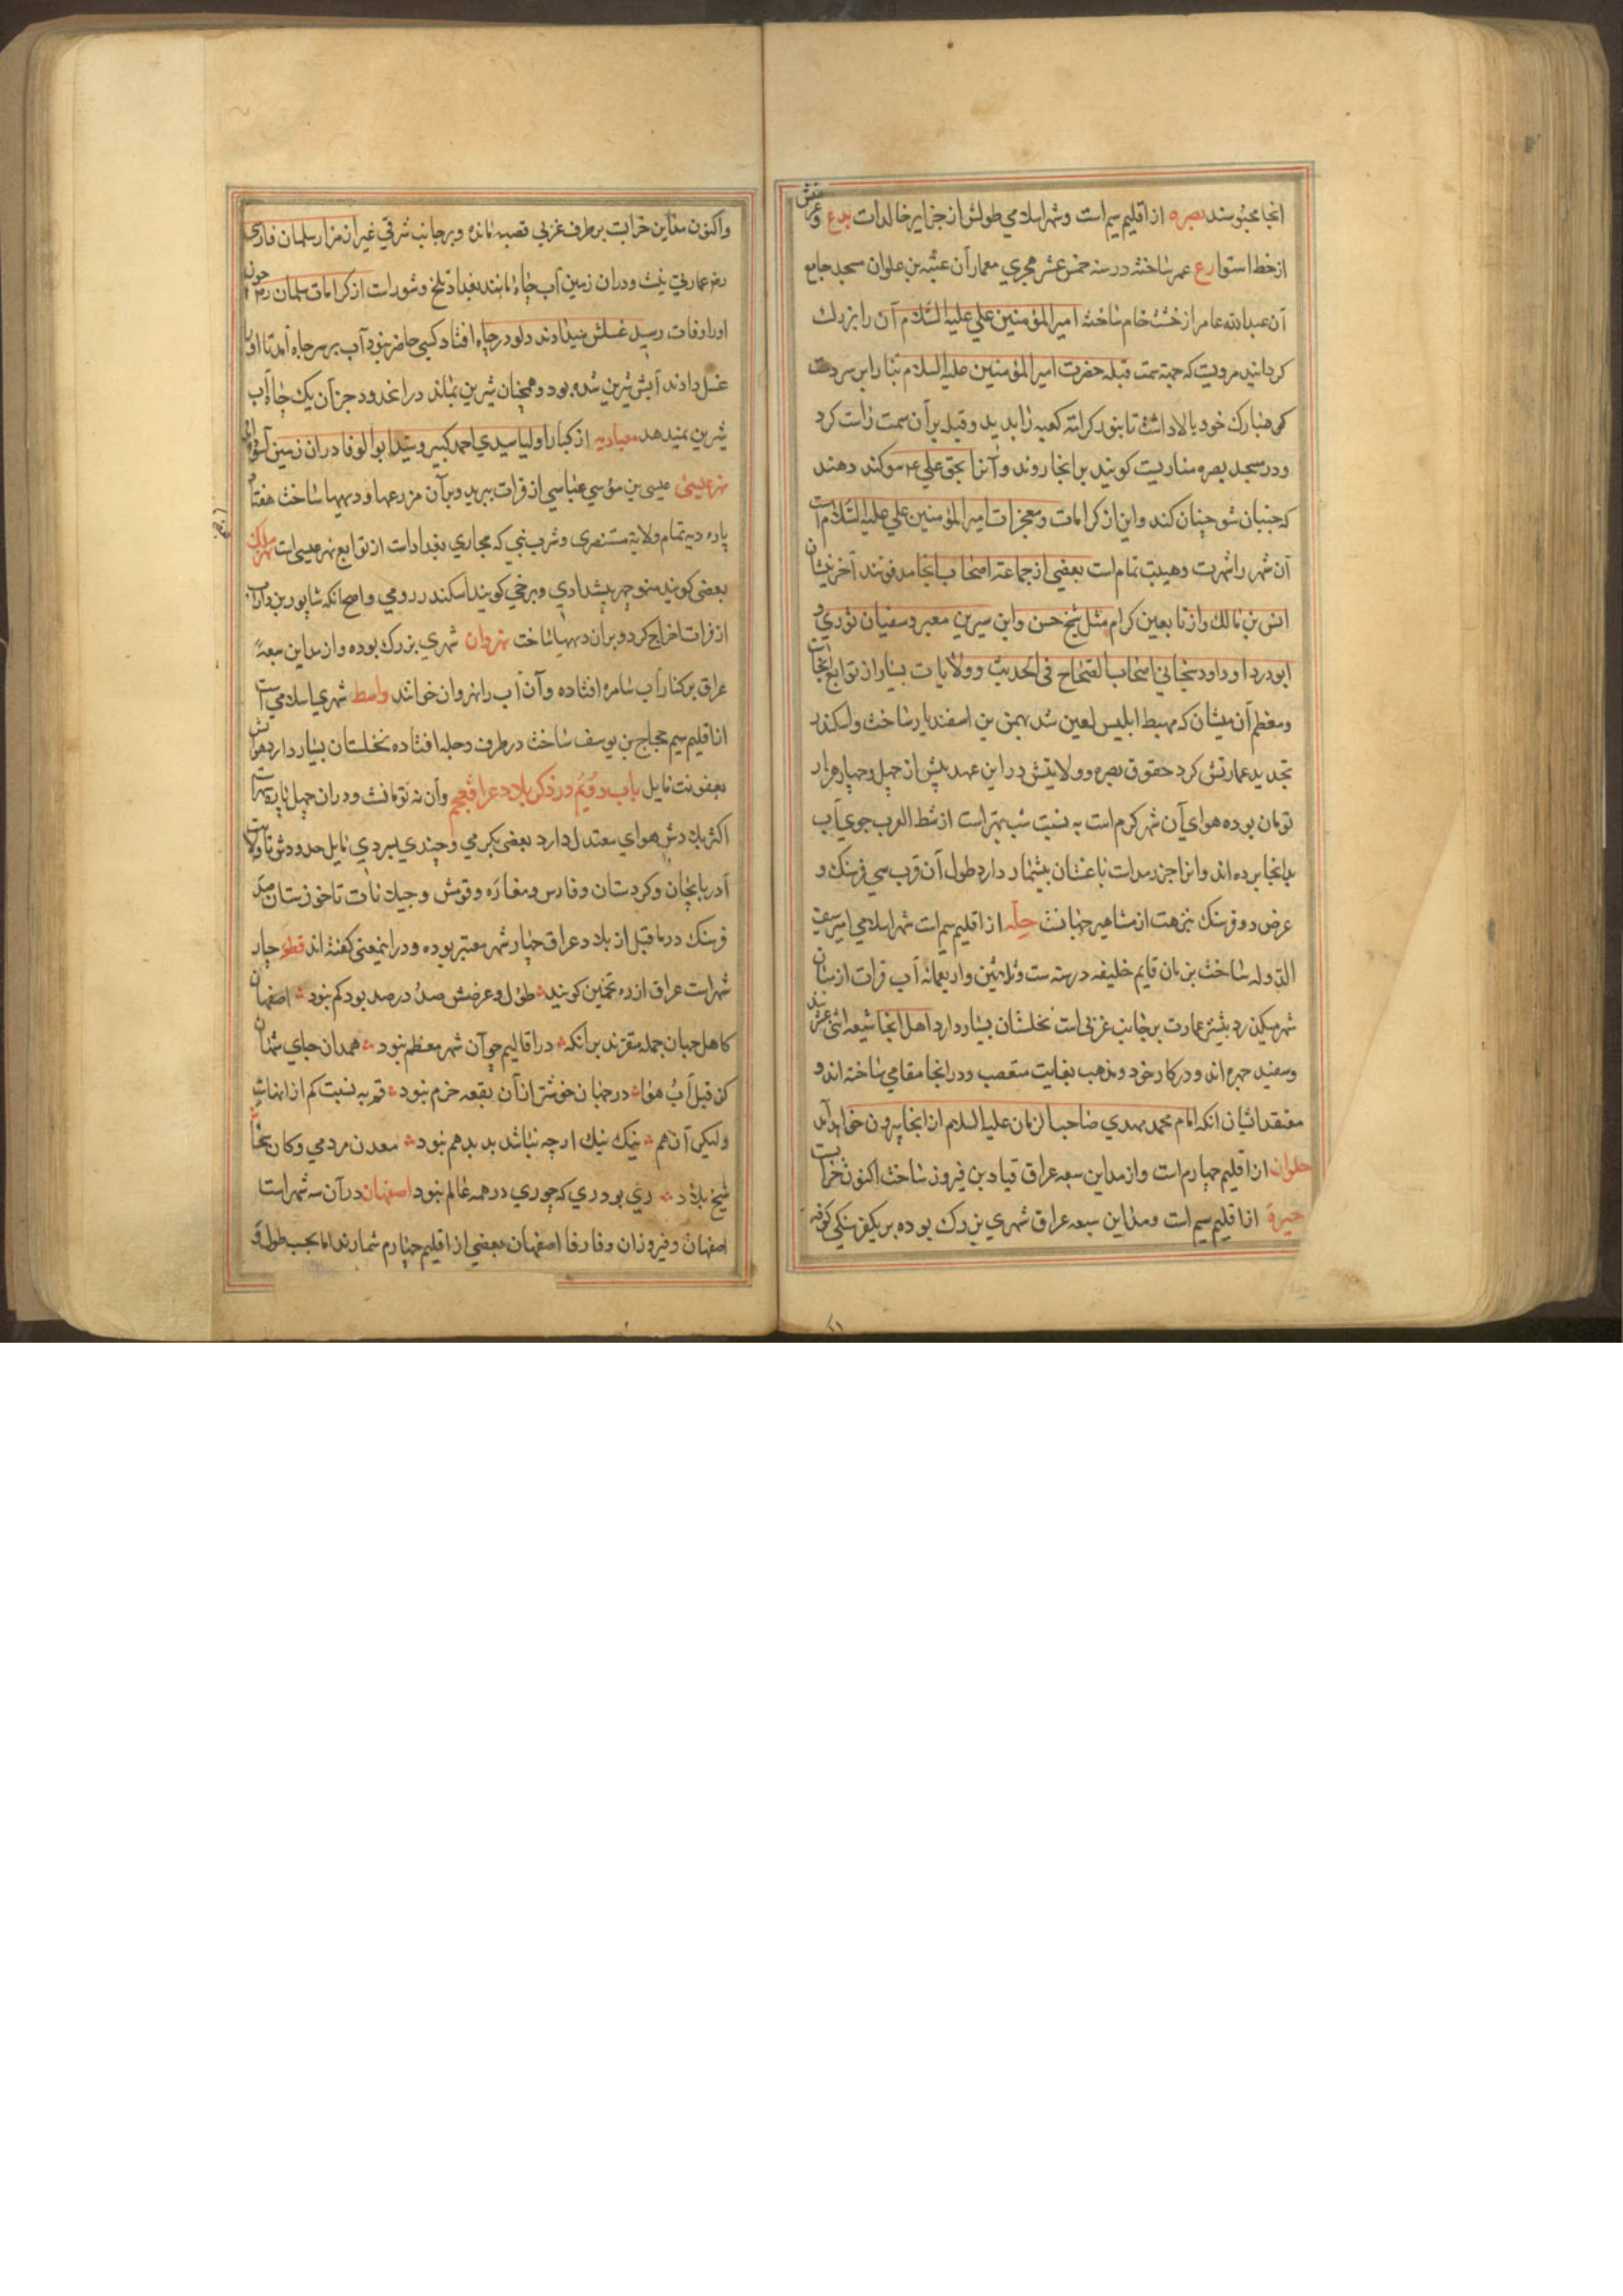 انجا محبوسند بصره از اقلیم سیم است وشهر اسلامی طولش از جزایر خالدات بدع وعرضش
از خط استوا رع عمر ساخته در سنه خمس عشر هجری معمار آن عتبه بن علوان مسجد جامع
آن عبدالله عامر از خشت خام ساخته امیر المؤمنین علی علیه السلام آن را بزرك
کردانید مرویست که جهة سمت قبله حضرت امیر المؤمنین علیه السلام بنا را بر سر دست
مبارك خود بالا داشت تا بنور کرامة کعبه را بدید وقبله بر آن سمت راست کرد
ودر مسجد بصره مناریست کویند بر انجا روند وآنرا بحق علی ع سوکند دهند
که جنبان شو جنبان کند واین از کرامات ومعجزات امیر المؤمنین علی علیه السلام است
آن شهر را شهرت وهیبت تمام است بعضی از جماعة اصحاب انجا مدفونند آخر ایشان
انس بن مالك واز تابعین کرام مثل شیخ حسن وابن سیرین معبر وسفیان ثوری و
ابو درد او داود سجانی اصحاب الصحاح فی الحدیث وولایات بسیار از توابع انجاست
ومعظم آن میشان که مهبط ابلیس لعین شد بهمن بن اسفندیار ساخت واسکندر
تجدید عمارتش کرد حقوق بصره وولایتش در این عهد پیش از چهل وچهار هزار
تومان بوده هوای آن شهر کرم است به نسبت شب بهتر است از شط العرب جوی آب
بدانجا برده اند وانرا جزر مد است باغستان بیشمار دارد طول آن قرب سی فرسنك و
عرض دو فرسنك نزهت از مشاهیر جهانست حله از اقلیم سیم است شهر اسلامی امیر سیف
الدوله ساخت بزمان قایم خلیفه در سنه ست وثلاثین واربعمائه آب فرات از میان
شهر میکذرد بیشتر عمارت بر جانب غربی است نخلستان بسیار دارد اهل انجا شیعه اثنی عشریند
وسفید چهره اند ودر کار خود ومذهب بغایت متعصب ودر انجا مقامی ساخته اند و
معتقد اشیان انکه امام محمد مهدی صاحب الزمان علیه السلام از انجا بیرون خواهد آمد
حلوان از اقلیم چهارم است واز مداین سبعه عراق قباد بن فیروز ساخت اکنون خرابست
حیره از اقلیم سیم است ومداین سبعه عراق شهری بزرك بوده بر یکفرسنکی کوفه
واکنون مداین خرابست بر طرف غربی قصبه مانده وبر جانب شرقی غیر از مزار سلمان فارسی
رضه عمارتی نیست ودران زمین آب چاه مانند بغداد تلخ وشور است از کرامات سلمان رضه چون
اورا وفات رسید غسلش میدادند دلو در چاه افتاد کسی حاضر نبود آب بر سر چاه آمد تا اورا
غسل دادند آبش شیرین شده بود وهمچنان شیرین بماند در انحدود جز آن یك چاه آب
شیرین نمیدهد از کبار اولیا سیدی احمد کبیر وسید ابو الوفا دران زمین آسوده اند
نهر عیسی عیسی بن موسی عباسی از فرات ببرید وبر آن مزرعها ودیهها ساخت هفتاد
پاره دیه تمام ولایة مستنصری وشرب نبی که مجاری بغداد است از توابع نهر عیسی است نهر ملك
بعضی کویند منوچهر پیشدادی وبرخی کویند اسکندر رومی واصح انکه شاپور بن
از فرات اخراج کرد وبران دیهها ساخت نهروان شهری بزرك بوده واز مداین سبعهٔ
عراق بر کنار آب سامره افتاده وآن آب را نهروان خوانند واسط شهری اسلامی است
از اقلیم سیم حجاج بن یوسف ساخت در طرف دجله افتاده نخلستان بسیار دارد هواش
بعفونت مایل باب دویم در ذکر بلاد عراق عجم وآن نه تومانست ودران چهل پاره شهر است
اکثر بلادش هوای معتدل دارد بعضی بکرمی وچندی بسردی مایل حدودش تا ولایت
آذربایجان وکردستان وفارس ومفازه وقومش وجیلانات تا خوزستان صد
فرسنك در ما قبل از بلاد عراق چهار شهر معتبر بوده ودر اینمعنی کفته اند قطعه چار
شهر است عراق از ره تخمین کویند طول وعرضش صد در صد بود کم نبود اصفهان
کاهل جهان جمله مقرند برانکه در اقالیم چو آن شهر معظم نبود همدان جای شهان
کز قبل آب هوا در جهان خوشتر از آن بقعه خرم نبود قم به نسبت کم از اینهاست
ولیکن آن هم نیك نیك ار چه نباشد بد بدهم نبود معدن مردمی وکان سخا
شیخ بلاد ری بود ری که چو ری در همه عالم نبود اصفهان در آن سه شهر است
اصفهان وفیروزان وفارفا اصفهان بعضی از اقلیم چهارم شمارند اما بحسب طول و